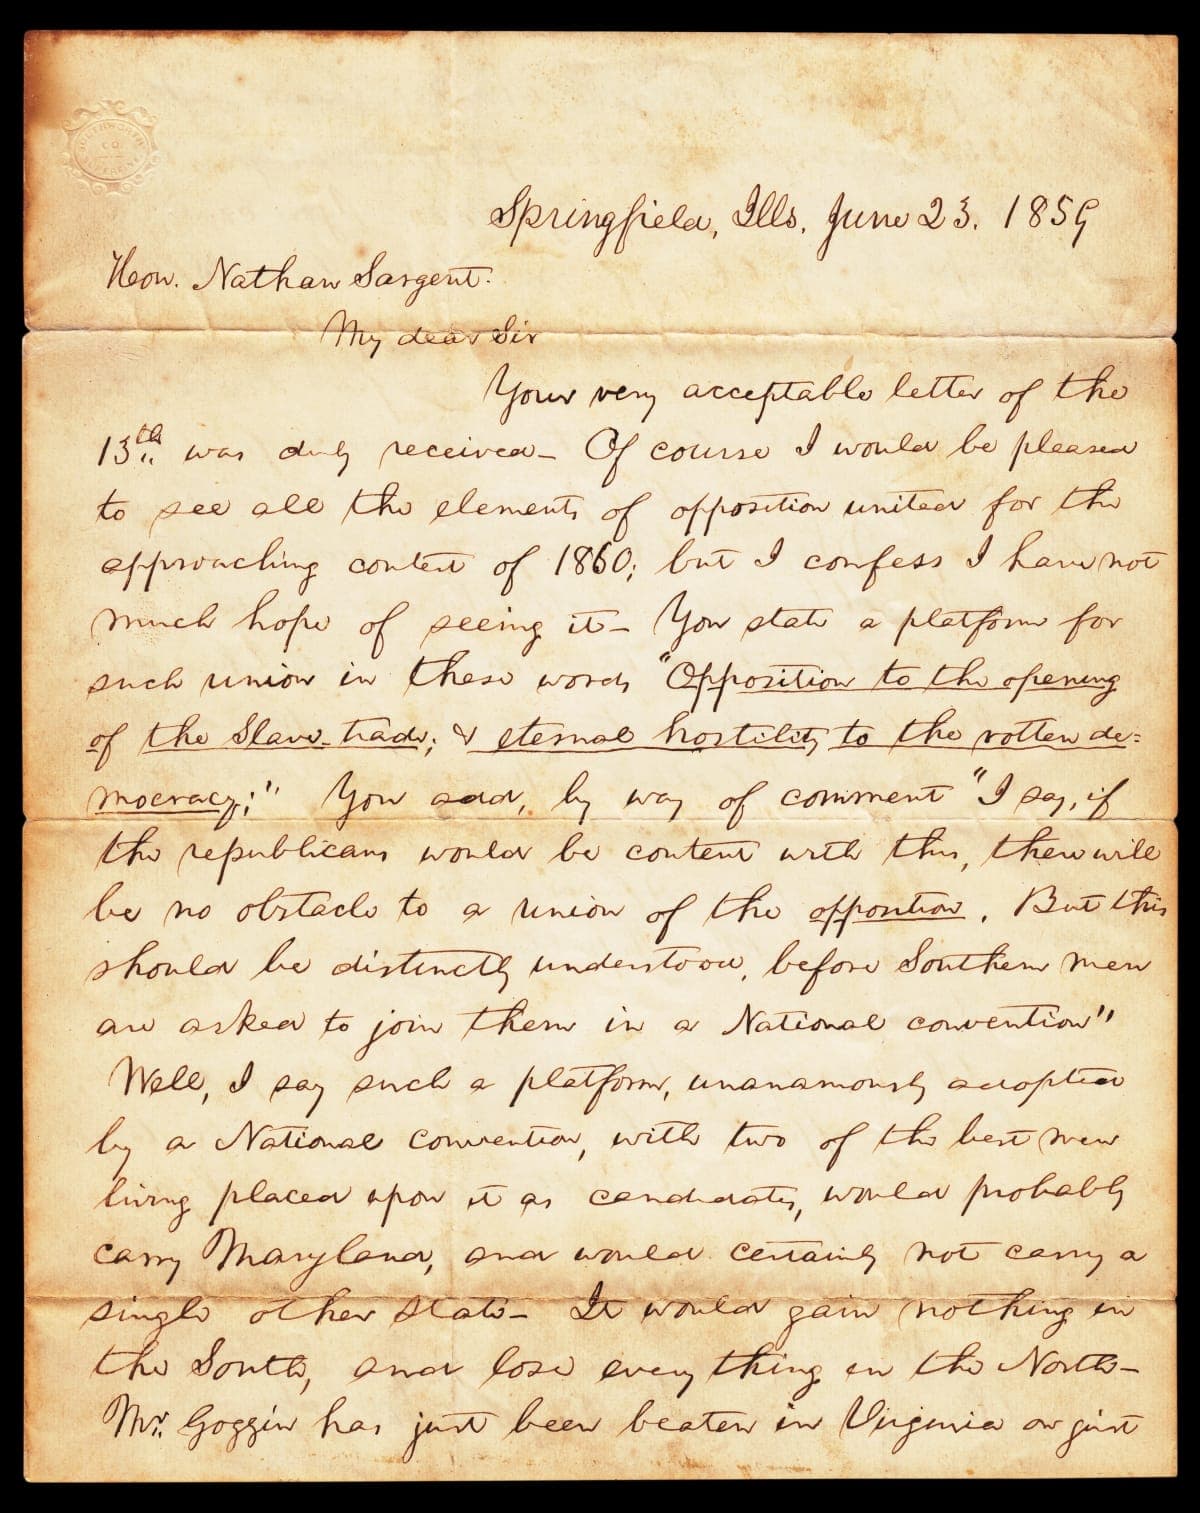 SOUTHWORTH
CO.
Springfield, Ills, June 23. 1859
Hon. Nathan Sargent.
My dear Sir
Your very acceptable letter of the
13th.. was duly received— Of course I would be pleased
to see all the elements of opposition united for the
approaching contest of 1860; but I confess I have not
much hope of seeing it— You state a platform for
such union in these words "Opposition to the opening
of the Slave-trade; & eternal hostility to the rotten de=
mocracy;" You add, by way of comment "I say, if
the republicans would be content with this, there will
be no obstacle to a union of the opposition. But this
should be distinctly understood, before Southern men
are asked to join them in a National convention"
Well, I say such a platform, unanamously adopted
by a National convention, with two of the best men
living placed upon it as candidates, would probably
carry Maryland, and would certainly not carry a
single other state— It would gain nothing in
the South, and lose every thing in the North—
Mr. Goggin has just been beaten in Virginia on just